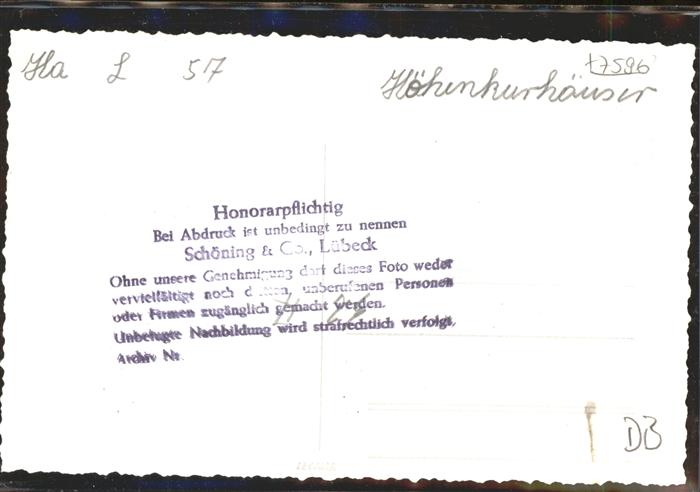 Ha L 57
+7596
Höhenkurhäuser
Honorarpflichtig
Bei Abdruck ist unbedingt zu nennen
Schöning & Co., Lübeck
Ohne unsere Genehmigung darf dieses Foto weder
vervielfältigt noch dritten, unberufenen Personen
oder Firmen zugänglich gemacht werden.
Unbefugte Nachbildung wird strafrechtlich verfolgt.
Archiv Nr.
DB